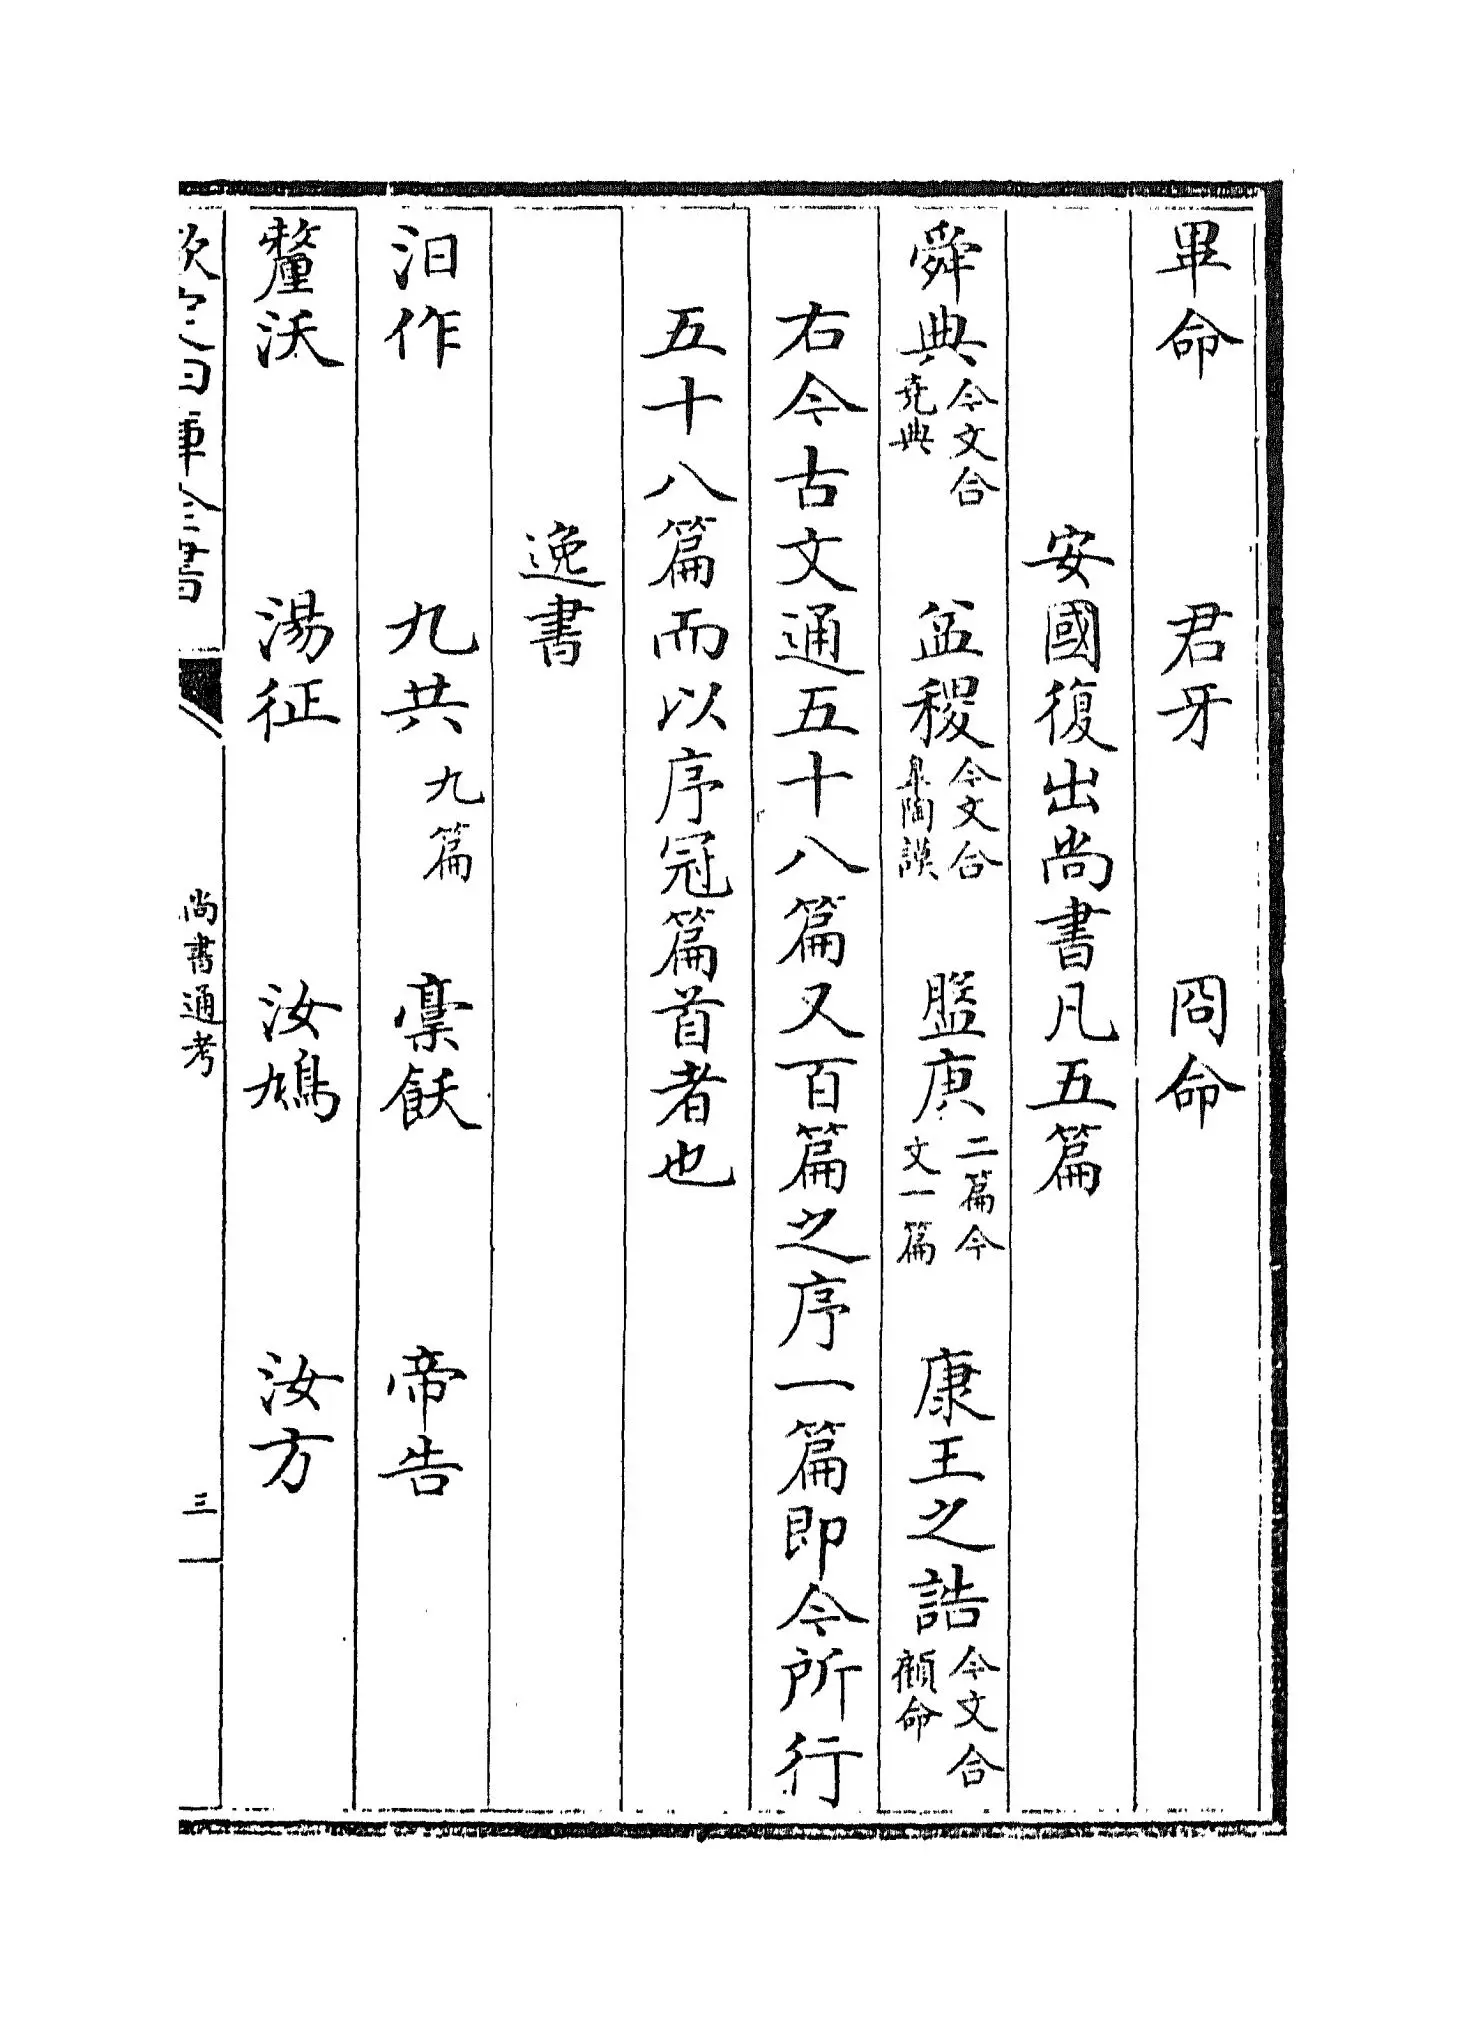 畢命　君牙　冏命
安國復出尚書凡五篇
舜典今文合堯典　益稷今文合臯陶謨　盤庚二篇今文一篇　康王之誥今文合顧命
右今古文通五十八篇又百篇之序一篇即今所行
五十八篇而以序冠篇首者也
逸書
汨作　九共九篇　稾飫　帝告
釐沃　湯征　汝鳩　汝方
欽定四庫全書　尚書通考　三